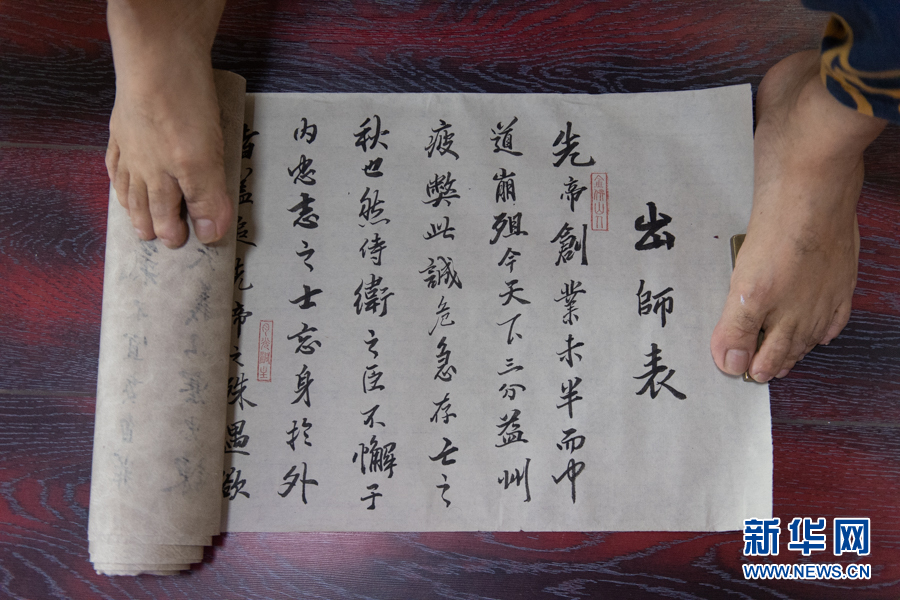 出師表
先帝創業未半而中
道崩殂今天下三分益州
疲弊此誠危急存亡之
秋也然侍衛之臣不懈于
内忠志之士忘身於外
者盖追先帝之殊遇欲
新华网
WWW.NEWS.CN